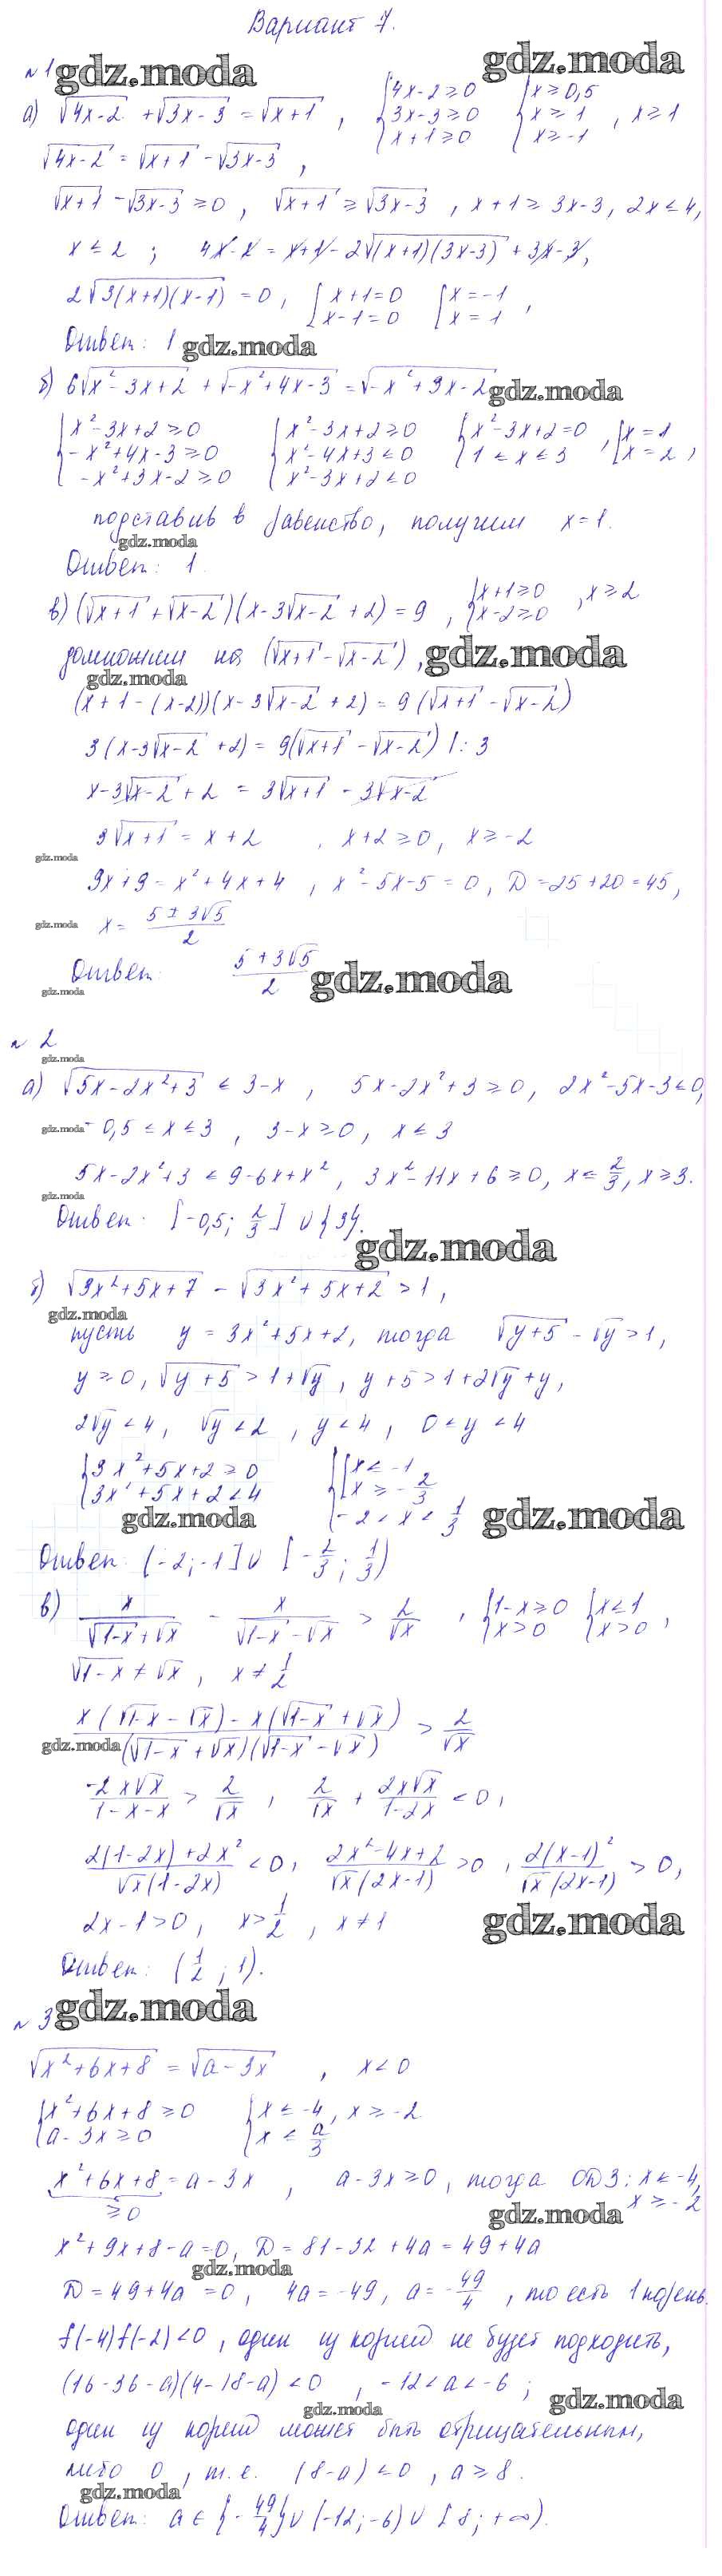 Вариант 7.
№1 gdz.moda gdz.moda
а) √(4x-2) + √(3x-3) = √(x+1) , { 4x-2≥0 3x-3≥0 x+1≥0 { x≥0,5 x≥1 x≥-1 , x≥1
√(4x-2) = √(x+1) - √(3x-3) ,
√(x+1) - √(3x-3) ≥0 , √(x+1) ≥ √(3x-3) , x+1≥3x-3, 2x≤4,
x≤2 ; 4x-2 = x+1-2√((x+1)(3x-3)) + 3x-3,
2√(3(x+1)(x-1)) = 0, [ x+1=0 x-1=0 [ x=-1 x=1 ,
Ответ: 1 gdz.moda
б) 6√(x²-3x+2) + √(-x²+4x-3) = √(-x²+3x-2) gdz.moda
{ x²-3x+2≥0 -x²+4x-3≥0 -x²+3x-2≥0 { x²-3x+2≥0 x²-4x+3≤0 x²-3x+2≤0 { x²-3x+2=0 1≤x≤3 , [ x=1 x=2 ,
подставив в равенство, получим x=1.
gdz.moda
Ответ: 1.
в) (√(x+1) + √(x-2))(x-3√(x-2) + 2) = 9 , { x+1≥0 x-2≥0 , x≥2
домножим на (√(x+1) - √(x-2)) , gdz.moda
gdz.moda
(x+1-(x-2))(x-3√(x-2) + 2) = 9(√(x+1) - √(x-2))
3(x-3√(x-2) + 2) = 9(√(x+1) - √(x-2)) |: 3
x-3√(x-2) + 2 = 3√(x+1) - 3√(x-2)
3√(x+1) = x+2 , x+2≥0, x≥-2
gdz.moda
9x+9 = x²+4x+4 , x²-5x-5=0, D=25+20=45,
gdz.moda x = (5±3√5)/2
Ответ: (5+3√5)/2 gdz.moda
gdz.moda
№ 2
gdz.moda
а) √(5x-2x²+3) ≤ 3-x , 5x-2x²+3≥0, 2x²-5x-3≤0,
gdz.moda -0,5≤x≤3 , 3-x≥0, x≤3
5x-2x²+3 ≤ 9-6x+x² , 3x²-11x+6≥0, x≤2/3, x≥3.
gdz.moda
Ответ: [-0,5; 2/3] ∪ {3}.
gdz.moda
б) √(3x²+5x+7) - √(3x²+5x+2) > 1 ,
gdz.moda
пусть y = 3x²+5x+2, тогда √(y+5) - √y > 1,
y≥0, √(y+5) > 1+√y , y+5 > 1+2√y+y,
2√y < 4, √y < 2 , y < 4 , 0≤y<4
{ 3x²+5x+2≥0 3x²+5x+2<4 { [ x≤-1 x≥-2/3 -2<x<1/3
gdz.moda gdz.moda
Ответ: (-2; -1] ∪ [-2/3; 1/3)
в) x/(√(1-x)+√x) - x/(√(1-x)-√x) > 2/√x , { 1-x≥0 x>0 { x≤1 x>0 ,
√(1-x) ≠ √x , x ≠ 1/2
(x(√(1-x)-√x) - x(√(1-x)+√x))/((√(1-x)+√x)(√(1-x)-√x)) > 2/√x
gdz.moda
-2x√x/(1-x-x) > 2/√x , 2/√x + 2x√x/(1-2x) < 0 ,
(2(1-2x)+2x²)/(√x(1-2x)) < 0, (2x²-4x+2)/(√x(2x-1)) > 0 , 2(x-1)²/(√x(2x-1)) > 0,
2x-1>0, x>1/2 , x≠1 gdz.moda
Ответ: (1/2 ; 1).
№ 3 gdz.moda
√(x²+6x+8) = √(a-3x) , x<0
{ x²+6x+8≥0 a-3x≥0 { x≤-4, x≥-2 x≤a/3
x²+6x+8 = a-3x , a-3x≥0, тогда ОДЗ: x≤-4,
≥0 gdz.moda x≥-2
x²+9x+8-a=0, D=81-32+4a=49+4a
gdz.moda
D=49+4a=0, 4a=-49, a=-49/4 , то есть 1 корень.
f(-4)f(-2)<0 , один из корней не будет подходить,
(16-36-a)(4-18-a)<0 , -12<a<-6 ;
gdz.moda gdz.moda
один из корней может быть отрицательным,
либо 0 , т.е. (8-a)≤0 , a≥8.
gdz.moda
Ответ: a∈{-49/4}∪(-12; -6)∪[8; +∞).